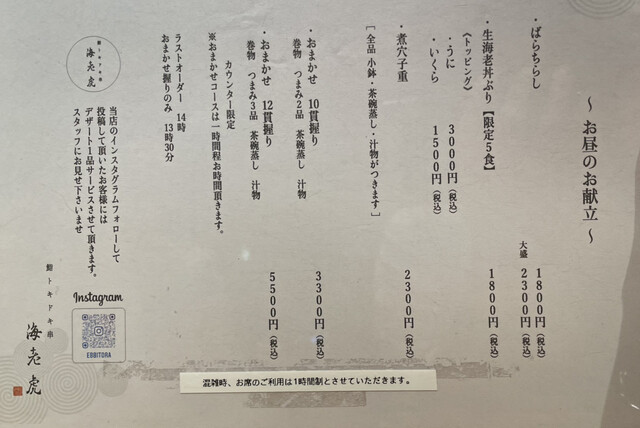 ～ お昼のお献立 ～
・ばらちらし 1800円（税込）
大盛 2300円（税込）
・生海老丼ぶり【限定5食】 1800円（税込）
《トッピング》
・うに 3000円（税込）
・いくら 1500円（税込）
・煮穴子重 2300円（税込）
［全品 小鉢・茶碗蒸し・汁物がつきます］
・おまかせ 10貫握り 3300円（税込）
巻物 つまみ2品 茶碗蒸し 汁物
・おまかせ 12貫握り 5500円（税込）
巻物 つまみ3品 茶碗蒸し 汁物
カウンター限定
※おまかせコースは一時間程お時間頂きます。
ラストオーダー 14時
おまかせ握りのみ 13時30分
鮨トキドキ串
海老虎
当店のインスタグラムフォローして
投稿して頂いたお客様には
デザート1品サービスさせて頂きます。
スタッフにお見せ下さいませ
Instagram
EBBITORA
鮨トキドキ串
海老虎
混雑時、お席のご利用は1時間制とさせていただきます。